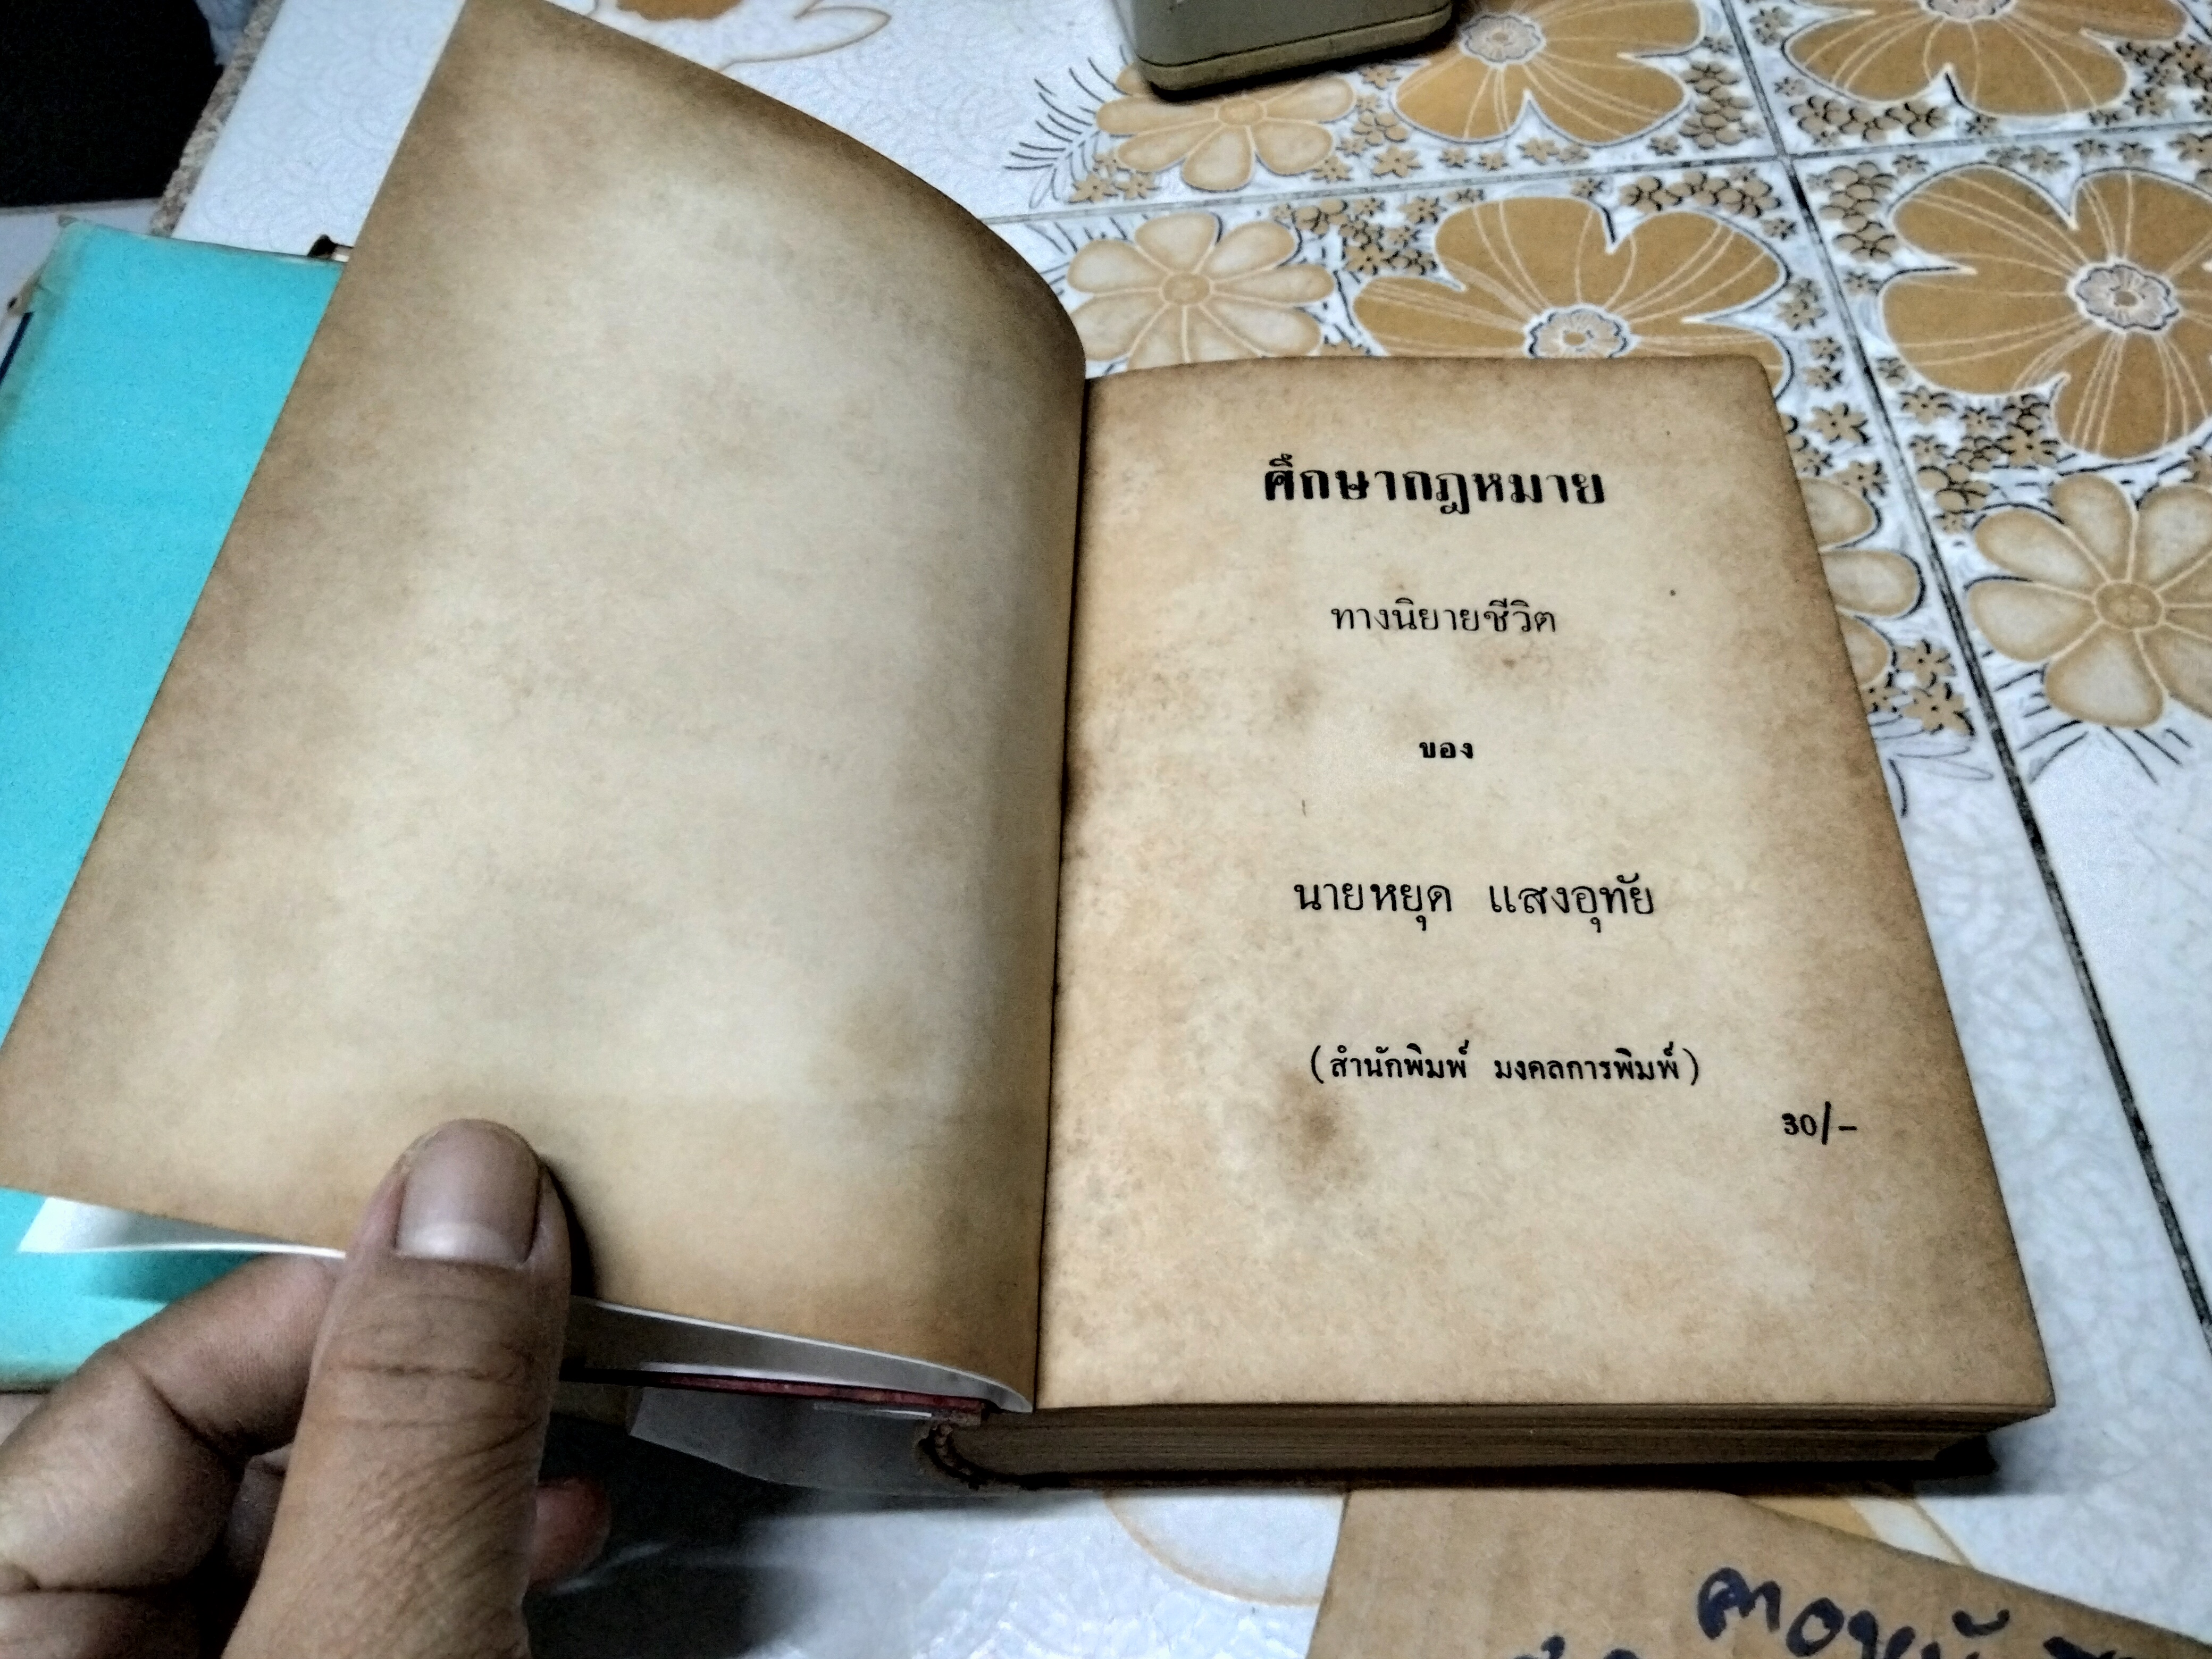 ศึกษากฎหมาย
ทางนิยายชีวิต
ของ
นายหยุด แสงอุทัย
(สำนักพิมพ์ มงคลการพิมพ์)
30/-